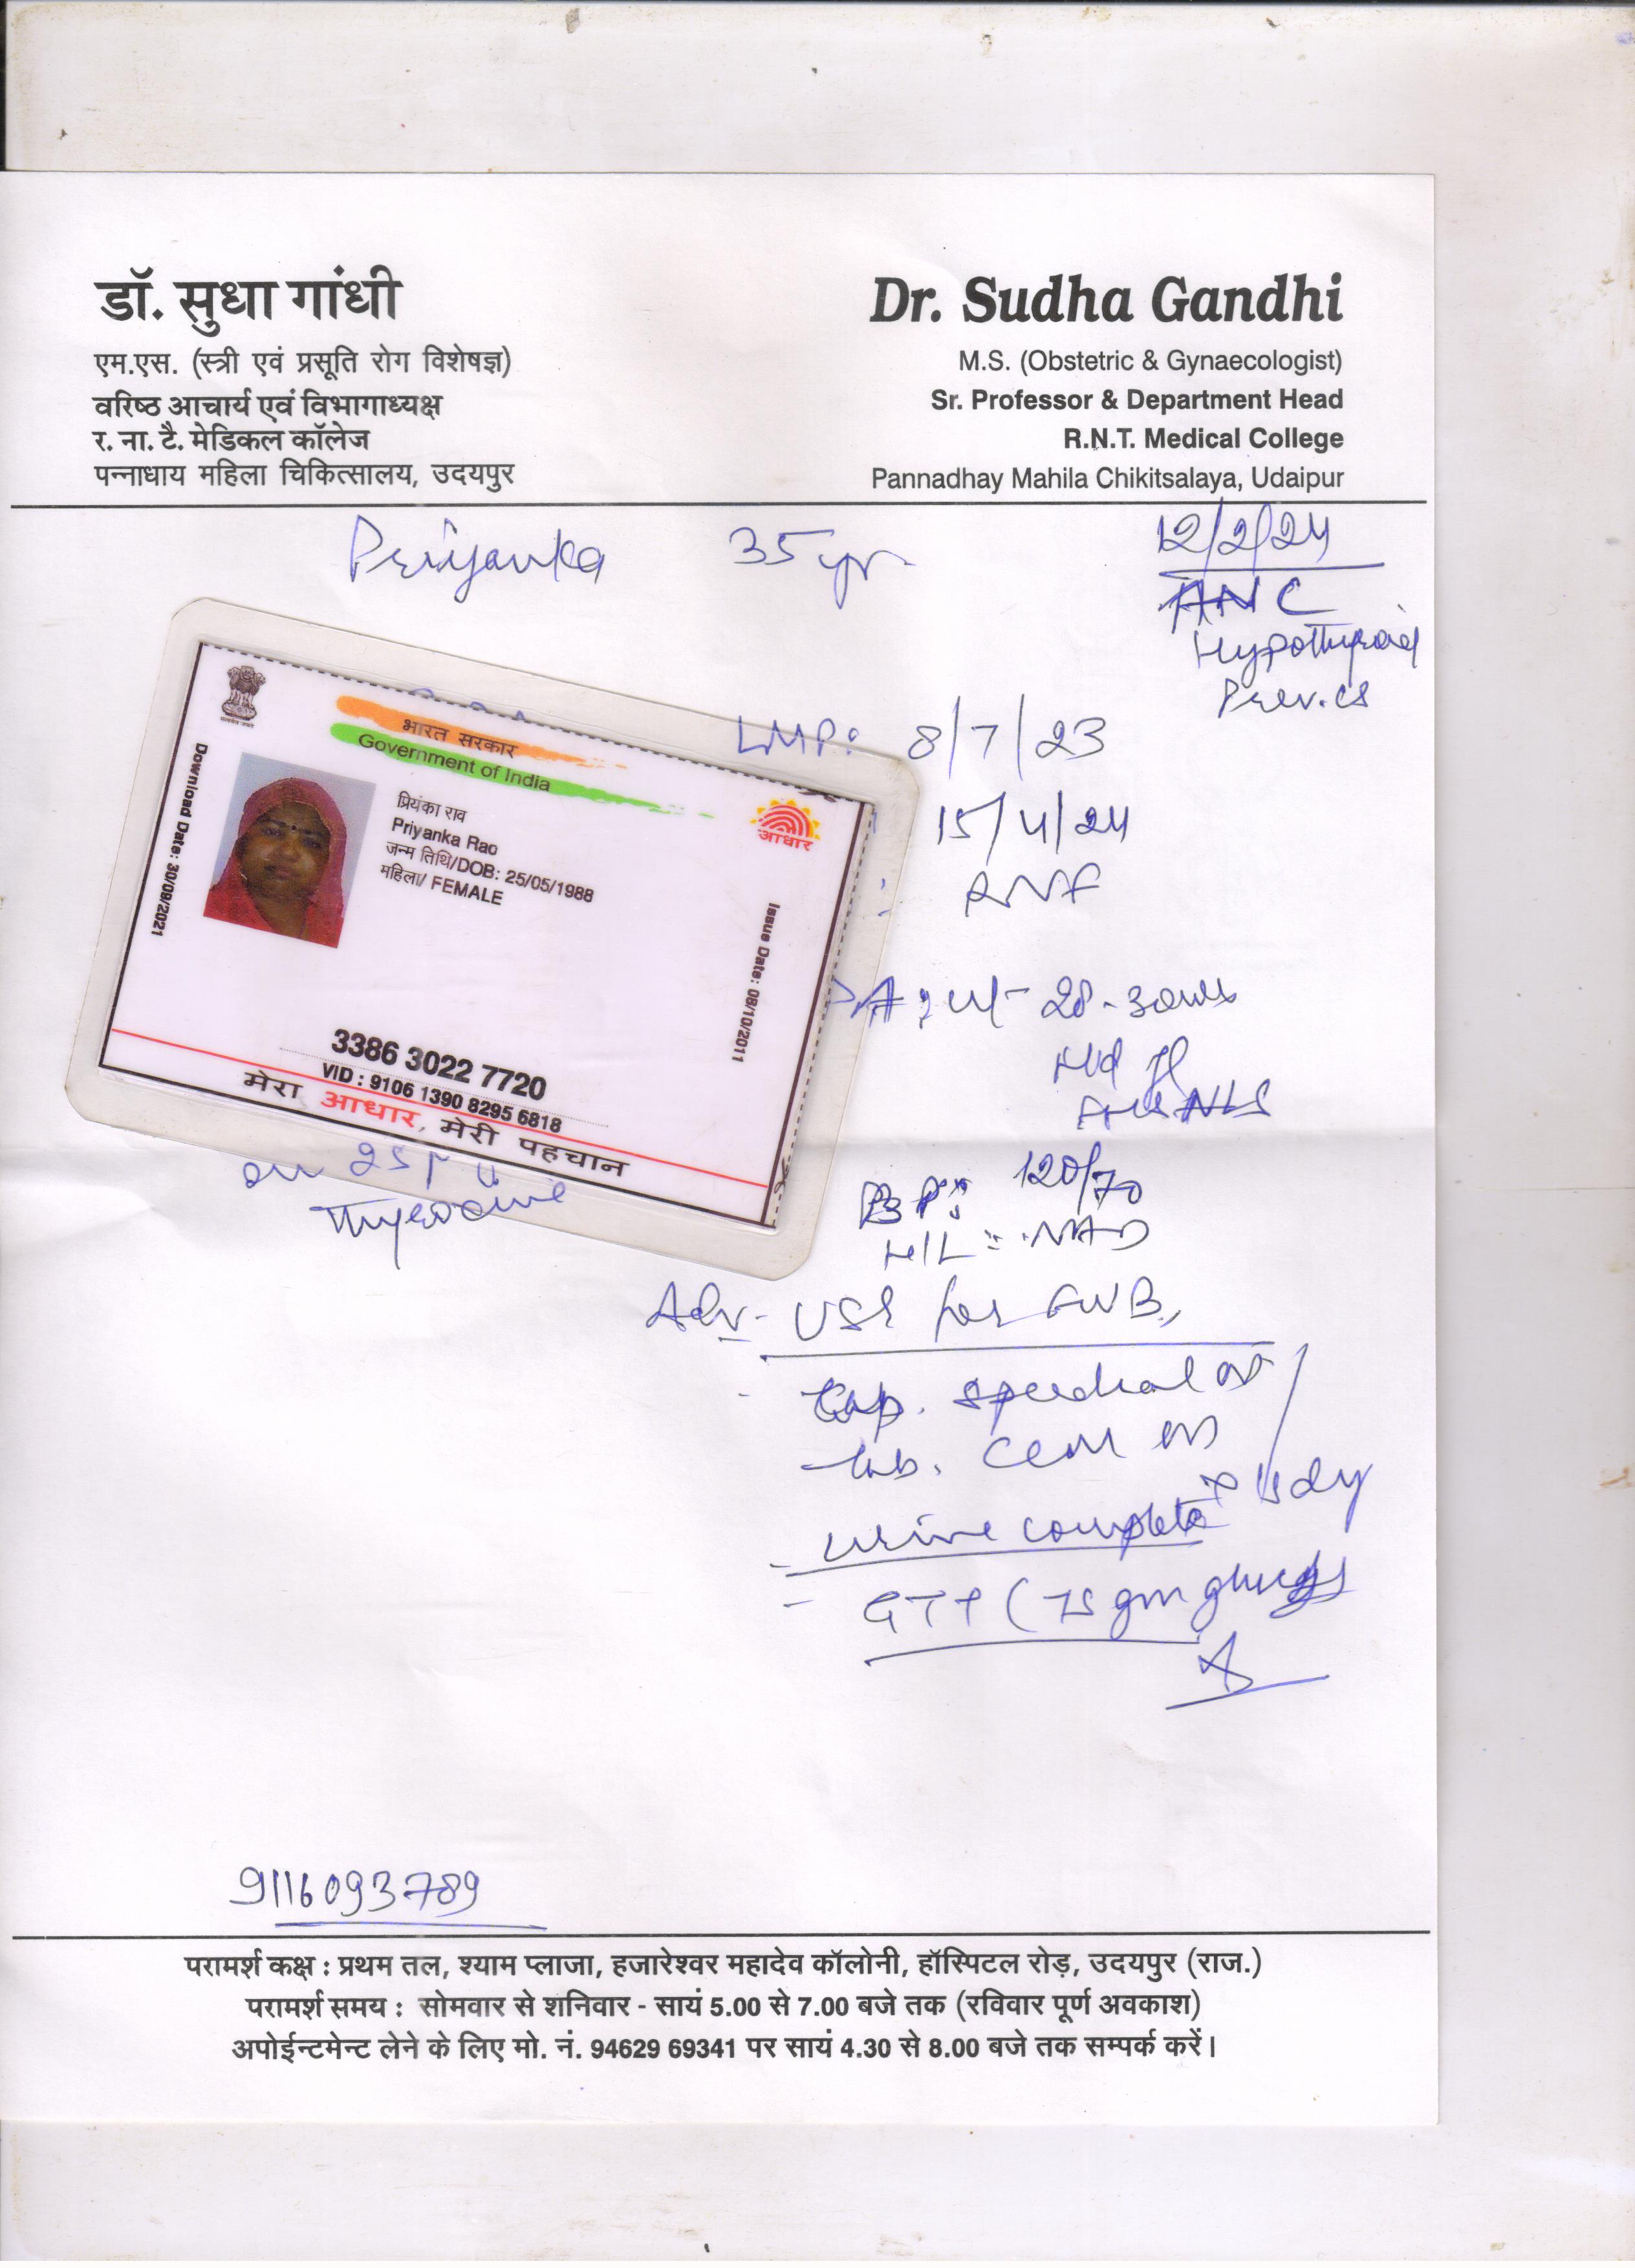 डॉ. सुधा गांधी
एम.एस. (स्त्री एवं प्रसूति रोग विशेषज्ञ)
वरिष्ठ आचार्य एवं विभागाध्यक्ष
र. ना. टै. मेडिकल कॉलेज
पन्नाधाय महिला चिकित्सालय, उदयपुर
Dr. Sudha Gandhi
M.S. (Obstetric & Gynaecologist)
Sr. Professor & Department Head
R.N.T. Medical College
Pannadhay Mahila Chikitsalaya, Udaipur
Priyanka 35 yr
12/2/24
ANC
Hypothyroid
Prev. CS
भारत सरकार
Government of India
Download Date: 30/09/2021
प्रियंका राव
Priyanka Rao
जन्म तिथि/DOB: 25/05/1988
महिला/ FEMALE
आधार
Issue Date: 08/10/2011
3386 3022 7720
VID : 9106 1390 8295 6818
मेरा आधार, मेरी पहचान
LMP: 8/7/23
15/4/24
: RNF
28-30wks
on 25
Thyroxine
BP: 120/70
H/L = NAD
Adv- USG for FWB,
Cap. OD
- Tab. CCM OD
- urine complete
- GTT (75 gm
9116093789
परामर्श कक्ष : प्रथम तल, श्याम प्लाजा, हजारेश्वर महादेव कॉलोनी, हॉस्पिटल रोड़, उदयपुर (राज.)
परामर्श समय : सोमवार से शनिवार - सायं 5.00 से 7.00 बजे तक (रविवार पूर्ण अवकाश)
अपोईन्टमेन्ट लेने के लिए मो. नं. 94629 69341 पर सायं 4.30 से 8.00 बजे तक सम्पर्क करें।